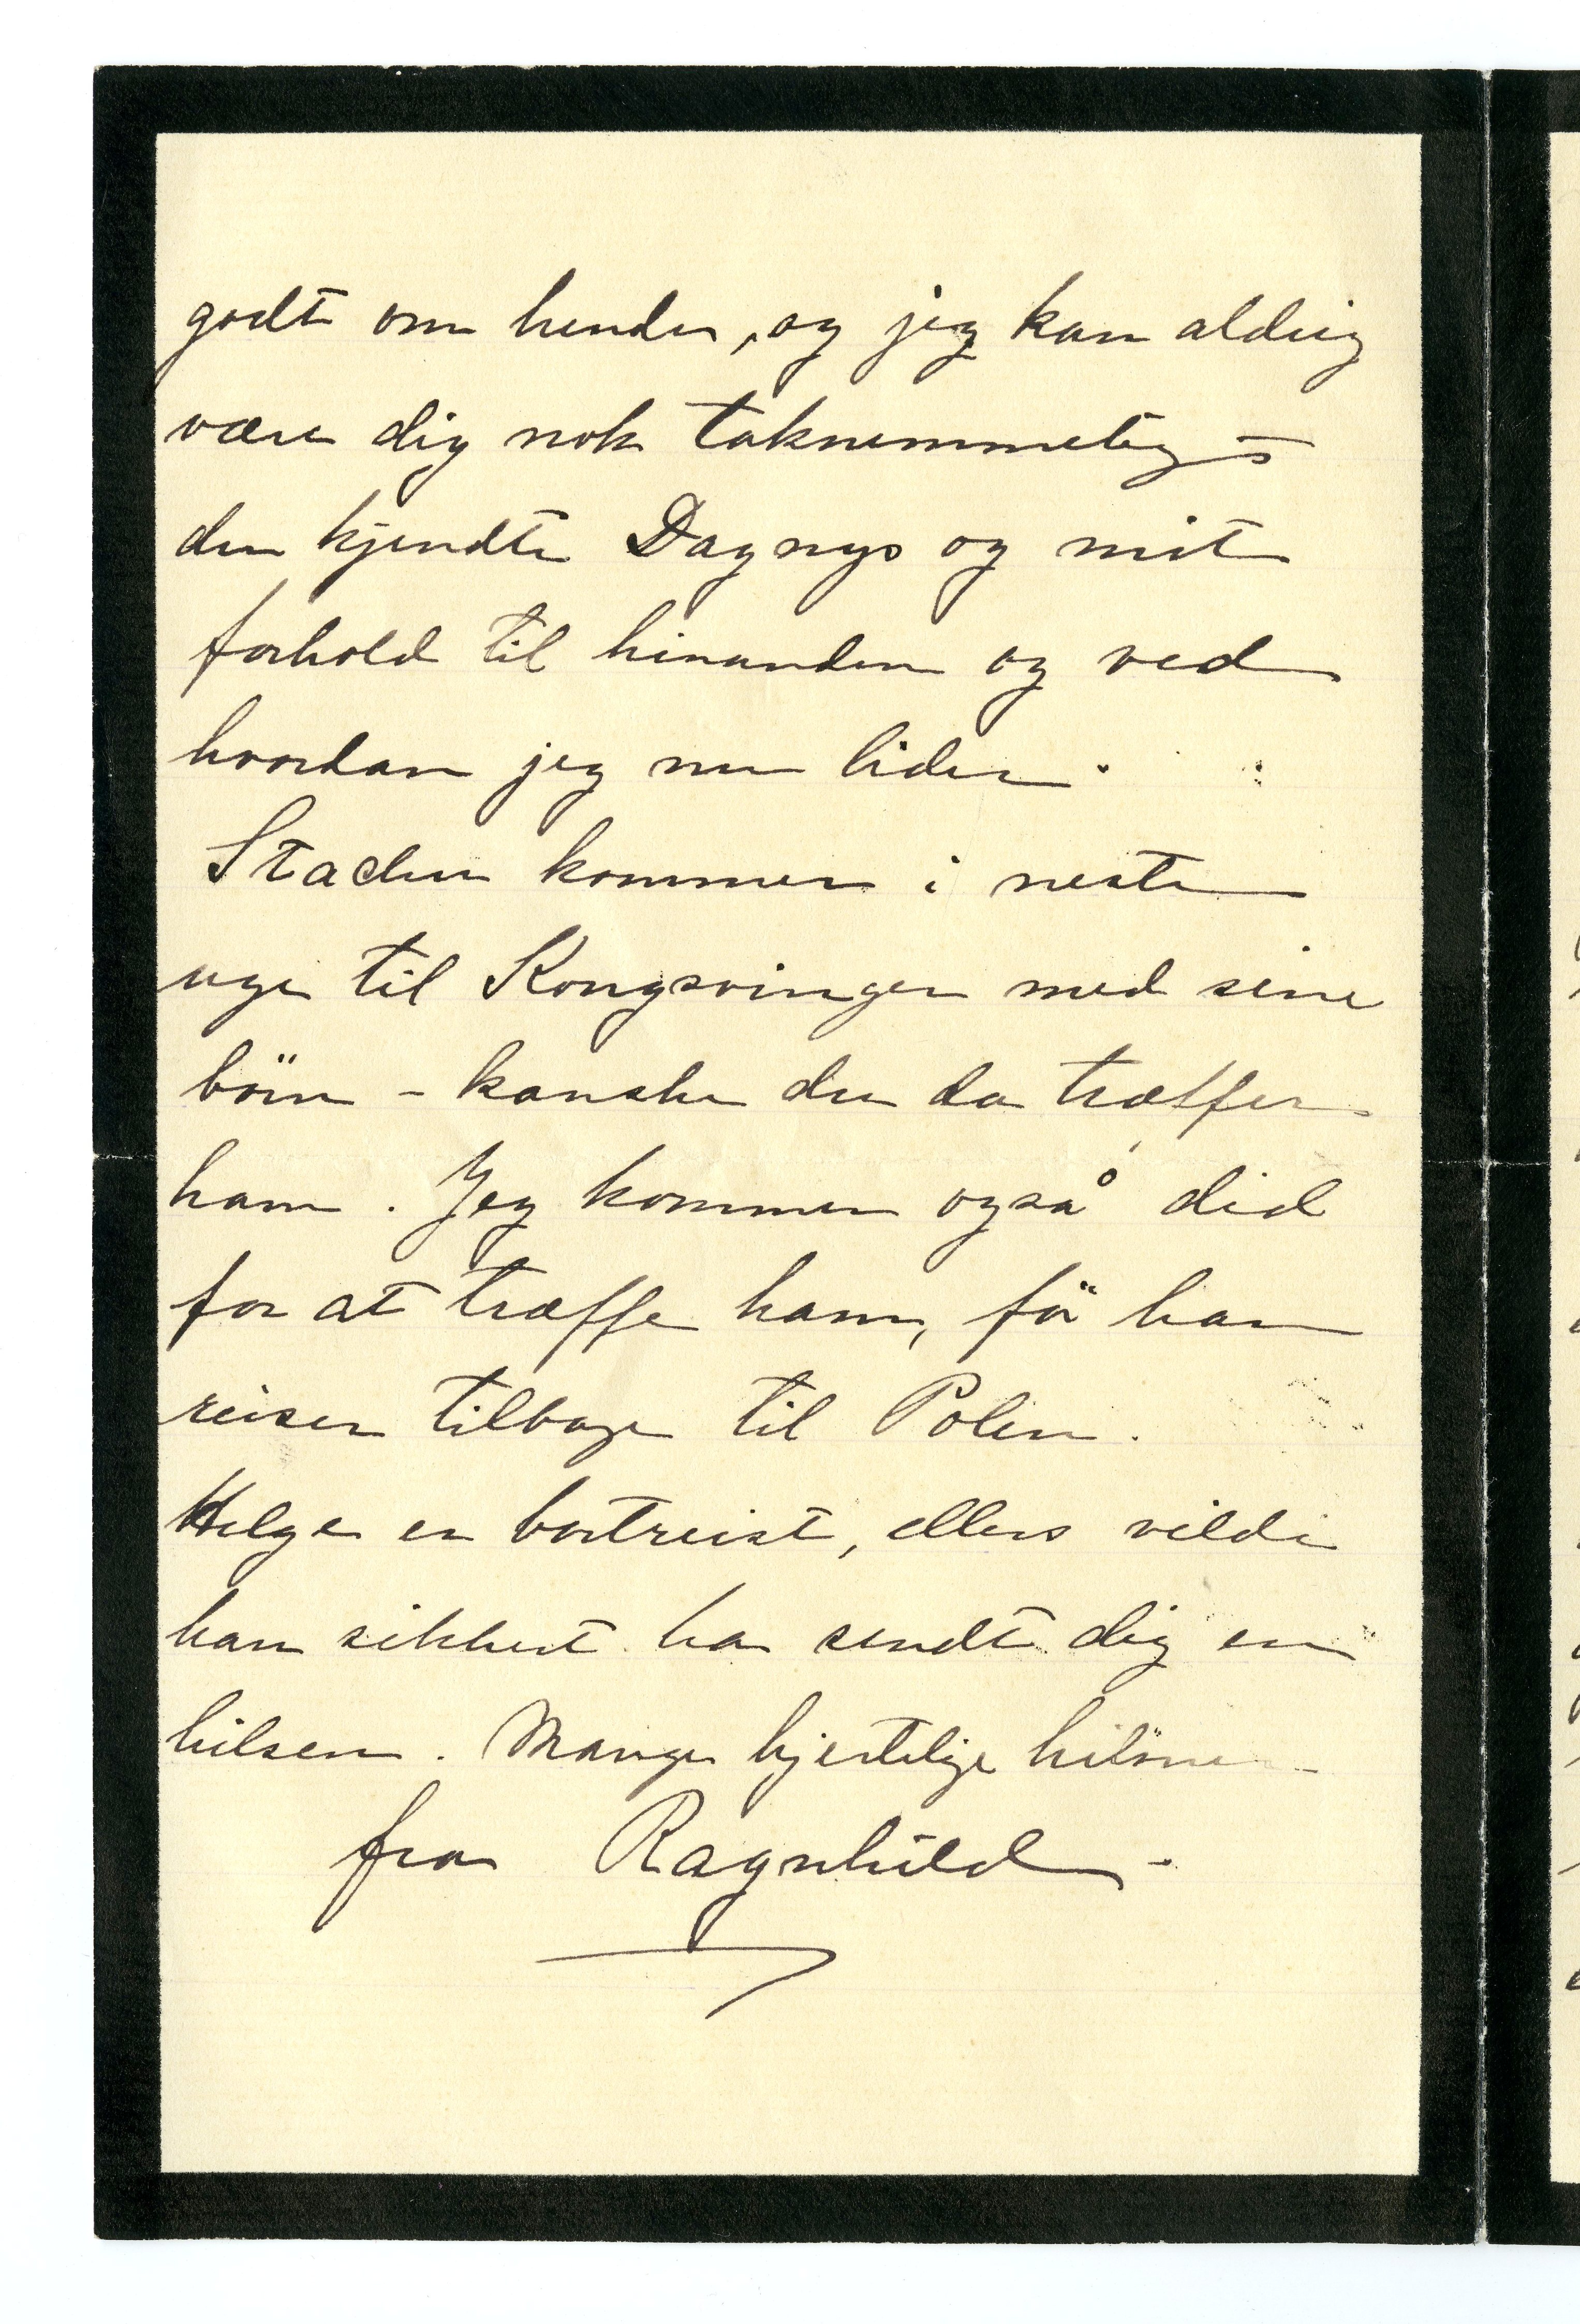 godt om hende, og jeg kan aldrig
være dig nok taknemmelig –
du kjendte Dagnys og mit
forhold til hinanden og ved
hvordan jeg nu lider.
Stachu kommer i neste
uge til Kongsvinger med sine
börn – kanske du da træffer
ham. Jeg kommer også did
for at træffe ham, för han
reiser tilbage til Polen.
Helge er bortreist, ellers vilde
han sikkert ha sendt dig en
hilsen. Mange hjertelige hilsner
fra Ragnhild.